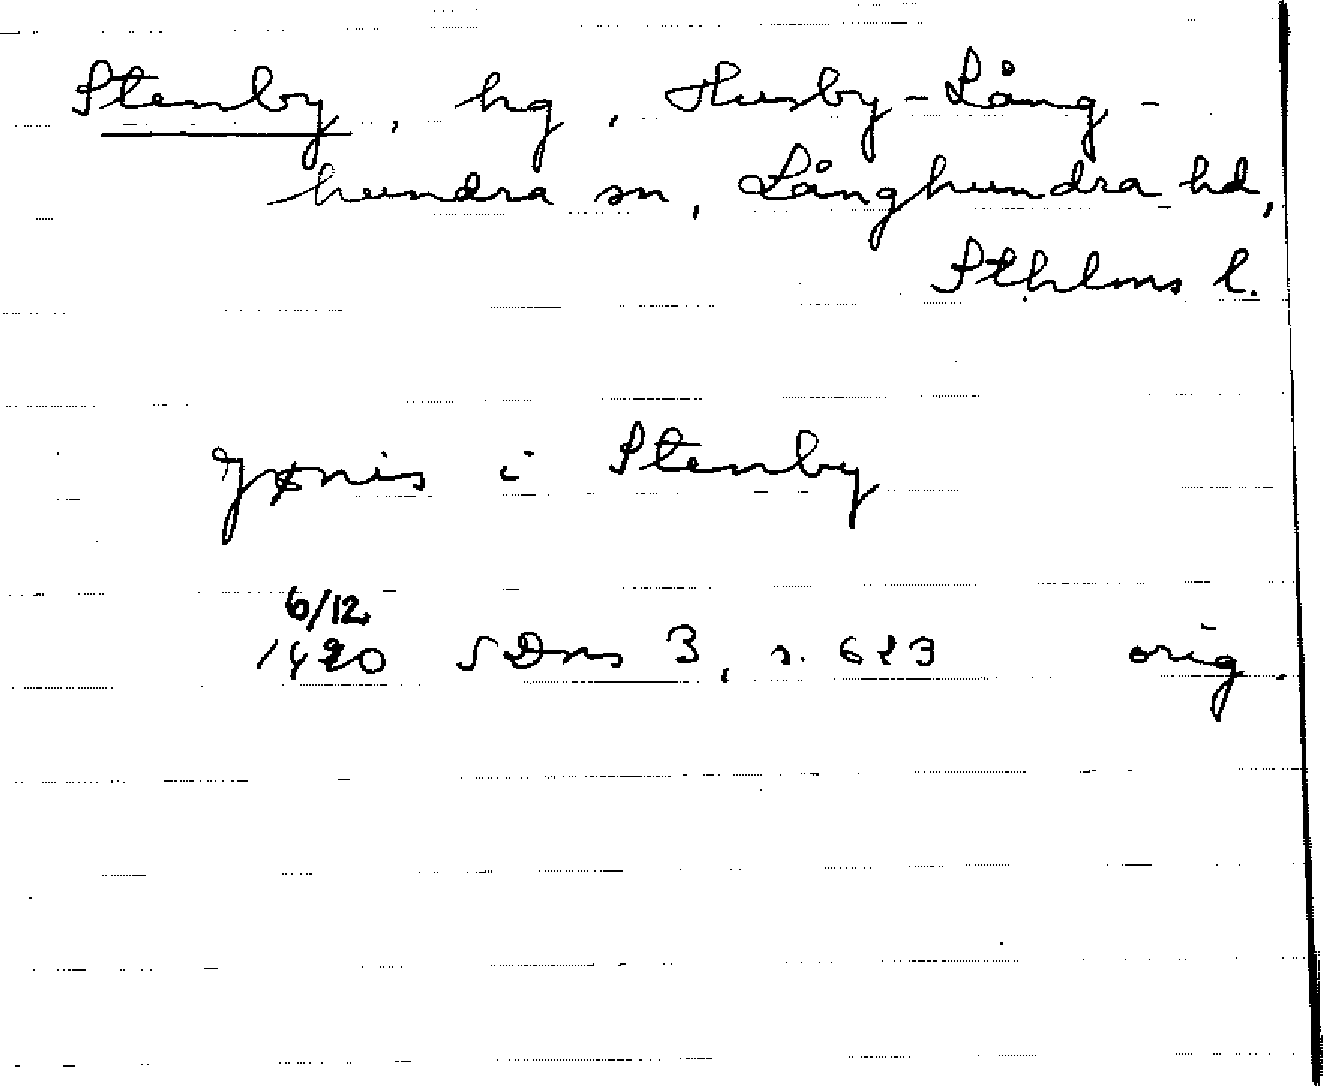 Stenby, hg, Husby-Lång-
hundra sn, Långhundra hd,
Sthlms l.
Jønis i Stenby
6/12
1420 SDns 3, s. 623 orig.